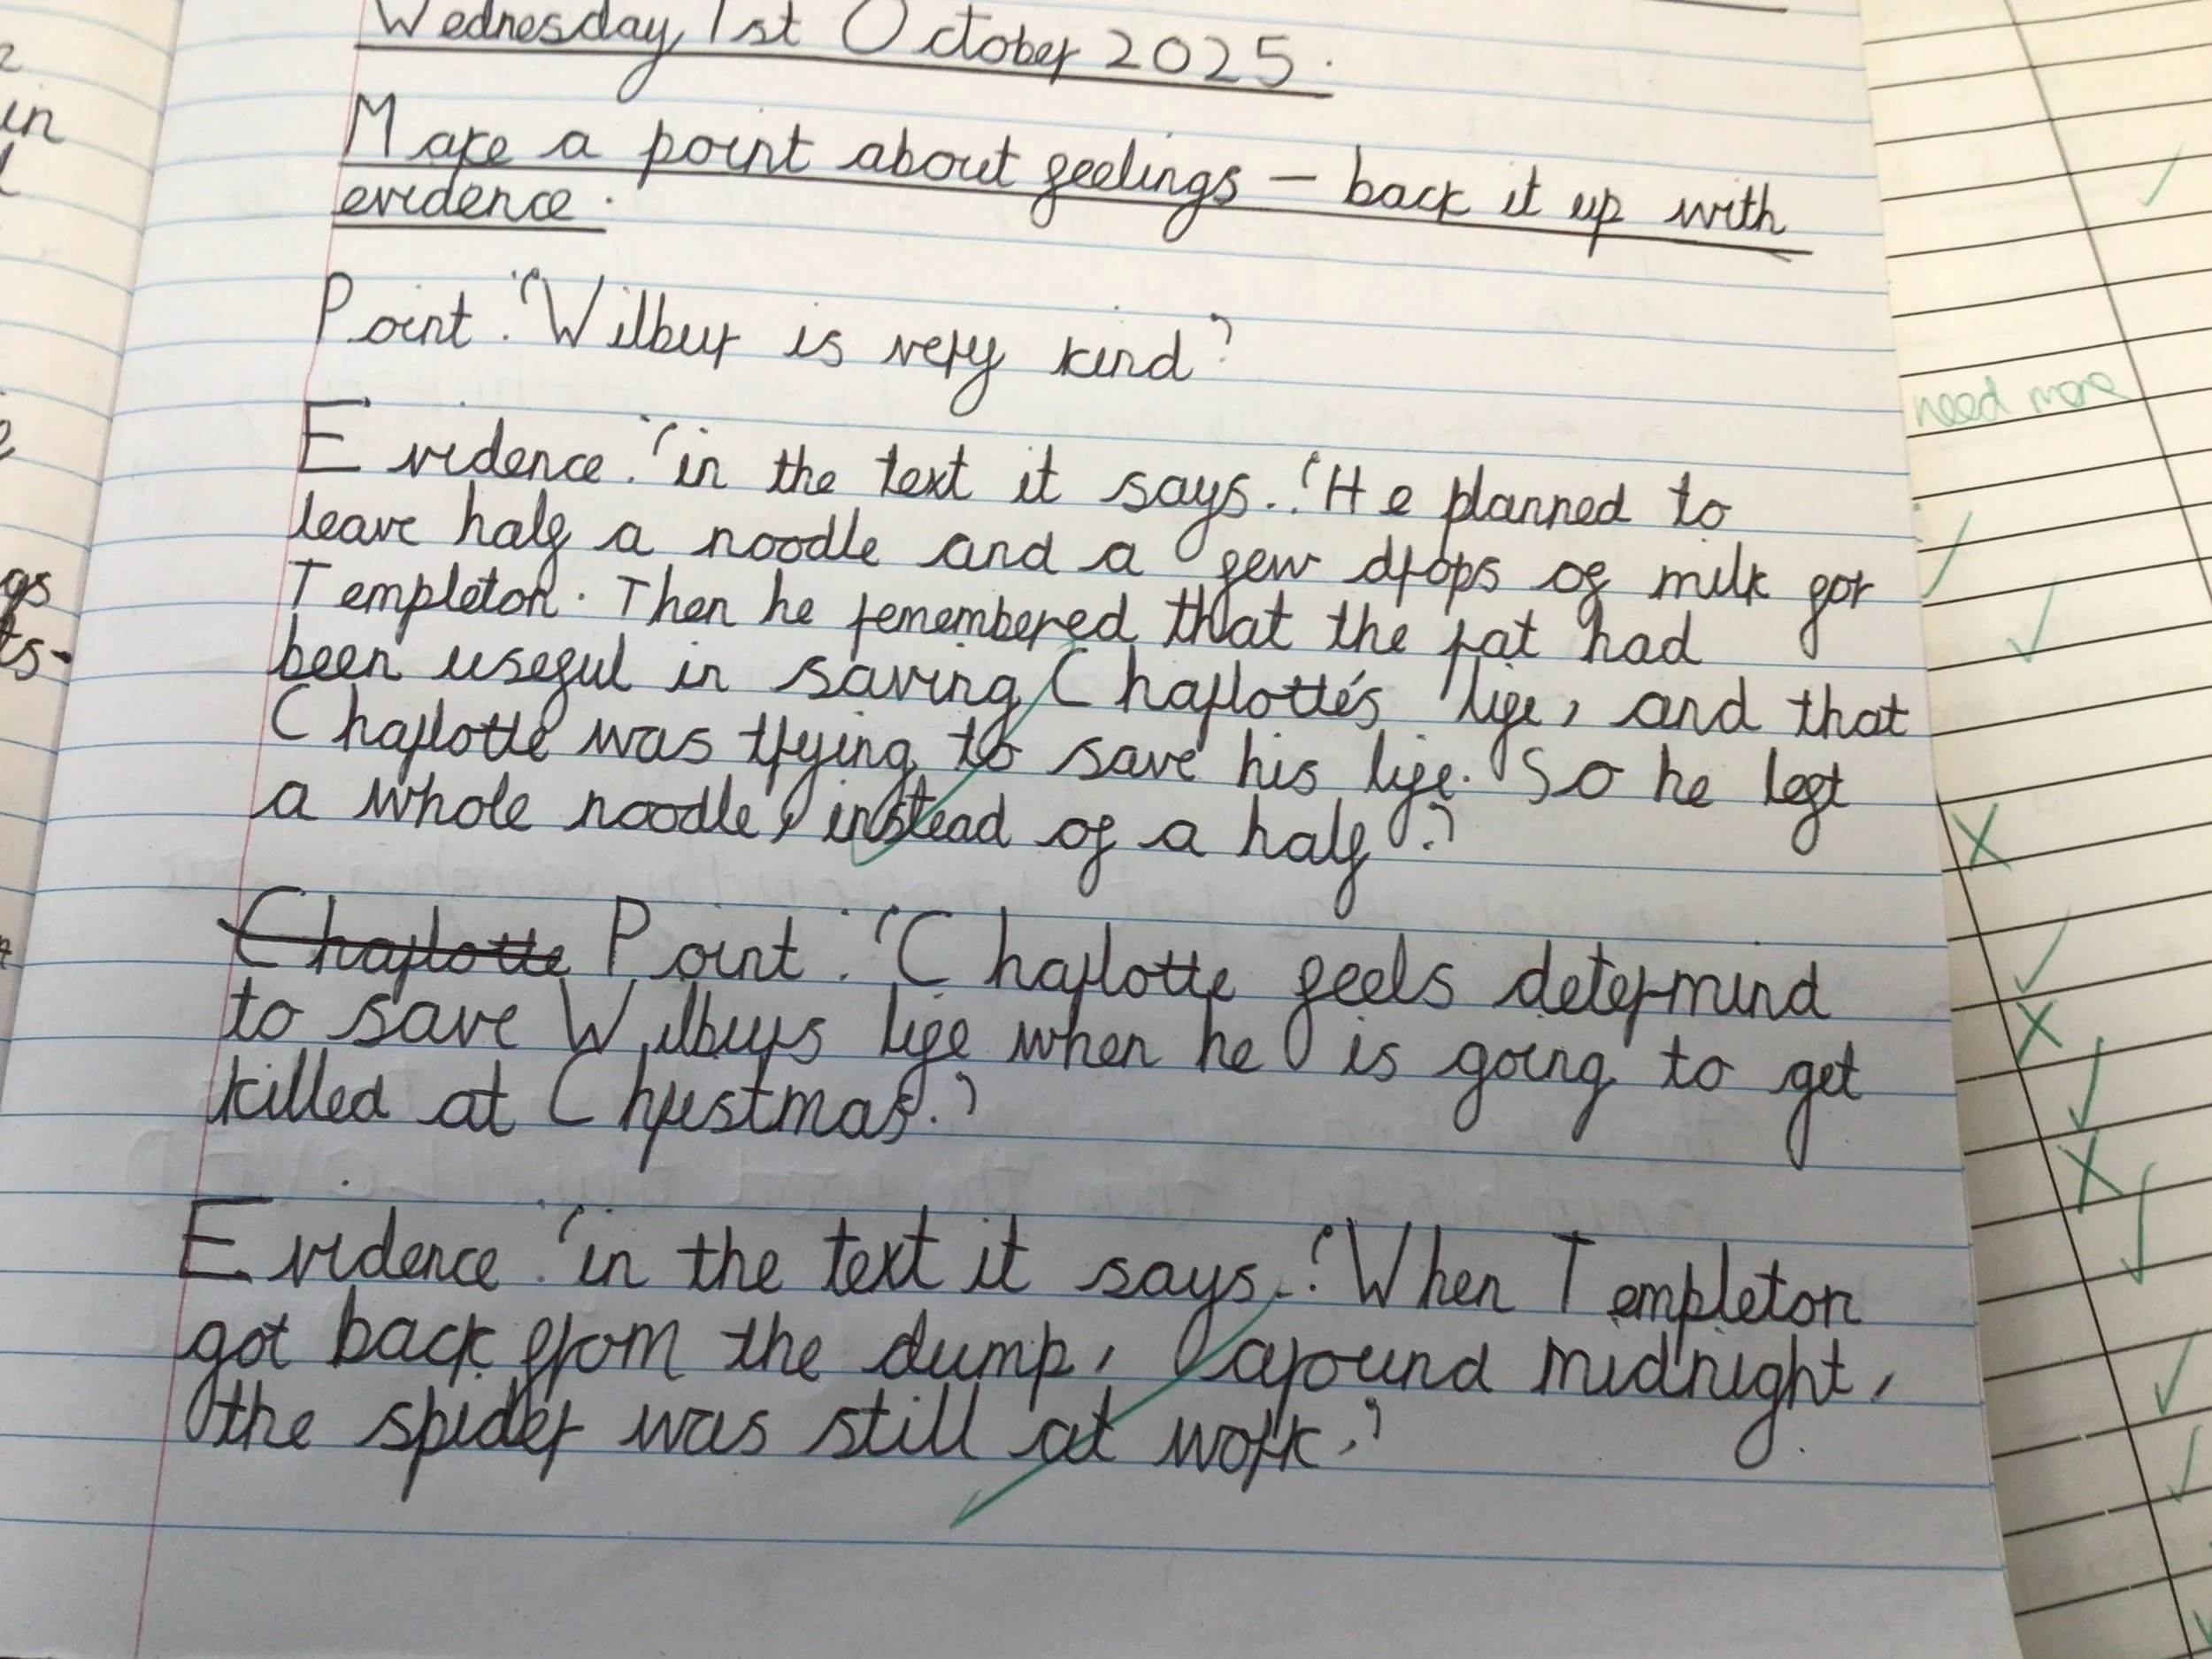 Wednesday 1st October 2025.
Make a point about feelings – back it up with
evidence.
Point: 'Wilbur is very kind'
Evidence: 'in the text it says.: 'He planned to
leave half a noodle and a few drops of milk for
Templeton. Then he remembered that the rat had
been useful in saving Charlotte's life, and that
Charlotte was trying to save his life. So he left
a whole noodle, instead of a half.'
Charlotte Point: 'Charlotte feels determind
to save Wilburs life when he is going to get
killed at Christmas.'
Evidence: 'in the text it says.: 'When Templeton
got back from the dump, around midnight,
the spider was still at work.'
in
gs
ts.
need more